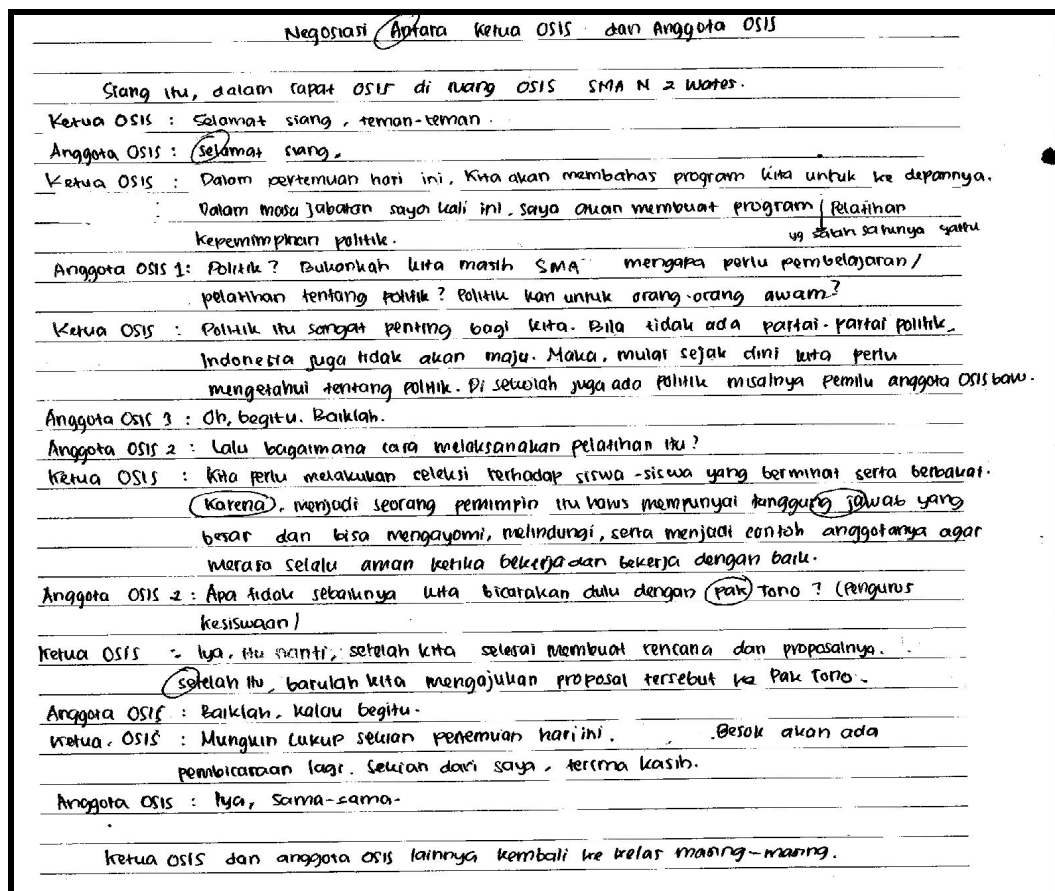 Negosiasi Antara Ketua OSIS dan Anggota OSIS
Siang itu, dalam rapat OSIS di ruang OSIS SMA N 2 Wates.
Ketua OSIS : Selamat siang, teman-teman.
Anggota OSIS : Selamat siang.
Ketua OSIS : Dalam pertemuan hari ini, kita akan membahas program kita untuk ke depannya.
Dalam masa jabatan saya kali ini, saya akan membuat program pelatihan
yg salah satunya yaitu
kepemimpinan politik.
Anggota OSIS 1: Politik? Bukankah kita masih SMA mengapa perlu pembelajaran/
pelatihan tentang politik? Politik kan untuk orang-orang awam?
Ketua OSIS : Politik itu sangat penting bagi kita. Bila tidak ada partai-partai politik,
Indonesia juga tidak akan maju. Maka, mulai sejak dini kita perlu
mengetahui tentang politik. Di sekolah juga ada politik misalnya pemilu anggota OSIS baru.
Anggota OSIS 3 : Oh, begitu. Baiklah.
Anggota OSIS 2 : Lalu bagaimana cara melaksanakan pelatihan itu?
Ketua OSIS : Kita perlu melakukan seleksi terhadap siswa-siswa yang berminat serta berbakat.
Karena, menjadi seorang pemimpin itu harus mempunyai tanggung jawab yang
besar dan bisa mengayomi, melindungi, serta menjadi contoh anggotanya agar
merasa selalu aman ketika bekerja dan bekerja dengan baik.
Anggota OSIS 2 : Apa tidak sebaiknya kita bicarakan dulu dengan pak Tono? (Pengurus
kesiswaan)
Ketua OSIS : Iya, itu nanti, setelah kita selesai membuat rencana dan proposalnya.
setelah itu, barulah kita mengajukan proposal tersebut ke Pak Tono.
Anggota OSIS : Baiklah, kalau begitu.
Ketua OSIS : Mungkin cukup sekian pertemuan hari ini. Besok akan ada
pembicaraan lagi. Sekian dari saya, terima kasih.
Anggota OSIS : Iya, sama-sama.
Ketua OSIS dan anggota OSIS lainnya kembali ke kelas masing-masing.